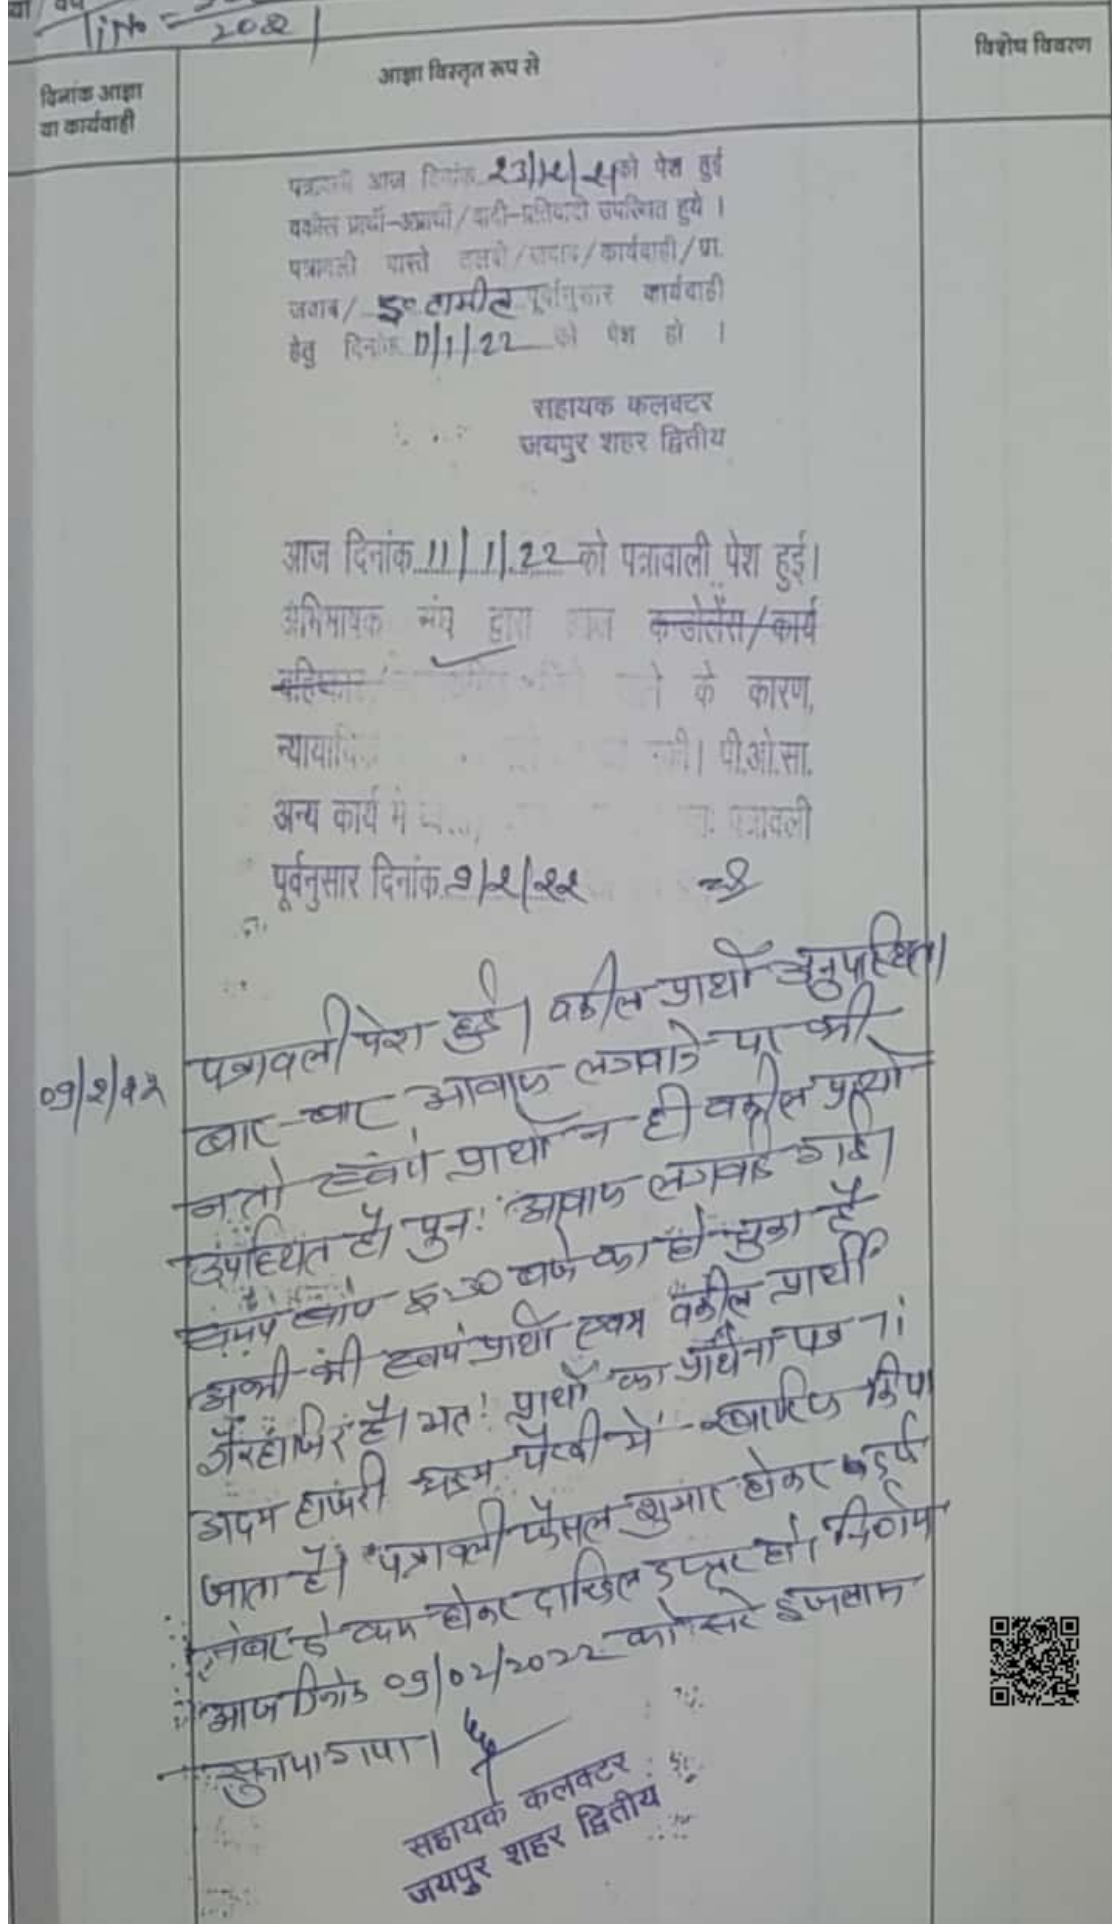 2022
दिनांक आज्ञा
या कार्यवाही
आज्ञा विस्तृत रूप से
विशेष विवरण
पत्रावली आज दिनांक 23/12/21 को पेश हुई
वकील प्रार्थी-अप्रार्थी/वादी-प्रतिवादी उपस्थित हुये ।
पत्रावली वास्ते तलबी/जवाब/कार्यवाही/प्रा.
जवाब/ इ० तामील पूर्वानुसार कार्यवाही
हेतु दिनांक 11/1/22 को पेश हो ।
सहायक कलक्टर
जयपुर शहर द्वितीय
आज दिनांक 11/1/22 को पत्रावली पेश हुई।
अभिभाषक संघ द्वारा आज कन्डोलेंस/कार्य
बहिष्कार के कारण,
पी.ओ.सा.
अन्य कार्य मे पत्रावली
पूर्वनुसार दिनांक 9/2/22
09/2/22
पत्रावली पेश हुई। वकील प्रार्थी अनुपस्थित।
बार-बार आवाज लगवाने पर भी
न तो स्वयं प्रार्थी न ही वकील प्रार्थी
उपस्थित है। पुनः आवाज लगवाई गई।
समय सायं 5:30 बजे का हो चुका है
अभी भी स्वयं प्रार्थी एवम वकील प्रार्थी
गैरहाजिर है। अतः प्रार्थी का प्रार्थना पत्र
अदम हाजरी अदम पैरवी में खारिज किया
जाता है। पत्रावली फैसल शुमार होकर दर्ज
नंबर से कम होकर दाखिल दफ्तर हो। निर्णय
आज दिनांक 09/02/2022 को सरे इजलास
सुनाया गया।
सहायक कलक्टर
जयपुर शहर द्वितीय